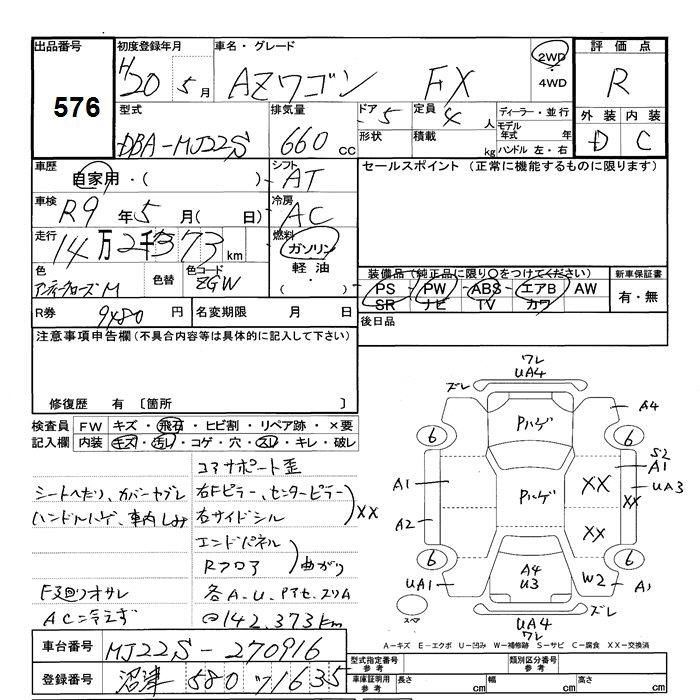 出品番号 初度登録年月 車名・グレード 評価点
576
H20 5月 AZワゴン FX 2WD ・ 4WD R
型式 排気量 ドア 5 定員 4 人 ディーラー・並行 外装 内装
DBA-MJ22S 660 cc 形状 積載 kg モデル年式 年 D C
ハンドル 左・右
車歴 自家用・( ) シフト AT セールスポイント (正常に機能するものに限ります)
車検 R9 年 5 月( 日) 冷房 AC
走行 14万2千373 km 燃料 ガソリン・軽油・( )
色 M 色替 色コード ZGW
装備品(純正品に限り○をつけてください) 新車保証書
PS・PW・ABS・エアB AW 有・無
SR ナビ TV カワ
R券 9480 円 名変期限 月 日 後日品
注意事項申告欄(不具合内容等は具体的に記入して下さい)
修復歴 有 〔箇所 〕
検査員記入欄 FW キズ・飛石・ヒビ割・リペア跡・×要
内装 キズ・汚レ・コゲ・穴・スレ・キレ・破レ
コアサポート歪
シートへたり、カバーヤブレ 右Fピラー、センターピラー
ハンドルハゲ、車内しみ 右サイドシル XX
エンドパネル
Rフロア 曲がり
F3回りオサレ 各A.U.
AC冷えず @142,373km
ワレ
UA4
ズレ
A4
Pハゲ
6 6
S2
A1 A1
UA3
XX XX
Pハゲ
A2
XX
6 6
A4
U3
UA1 W2 A1
ズレ
スペア
UA4
ワレ
A-キズ E-エクボ U-凹み W-補修跡 S-サビ C-腐食 XX-交換済
車台番号 MJ22S-270916
登録番号 沼津 580 ワ 1635
型式指定番号 参考 類別区分番号 参考
車庫証明用 参考 長さ cm 幅 cm 高さ cm